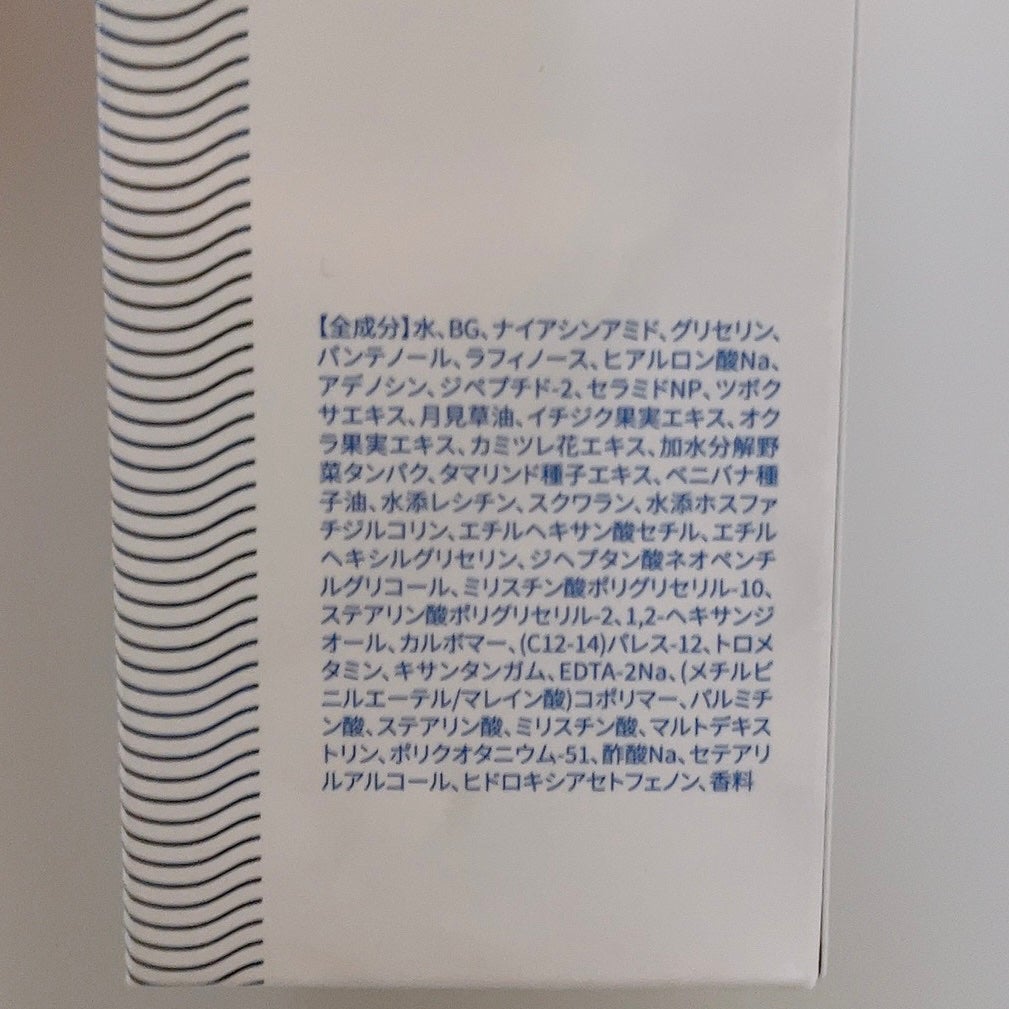 【全成分】水、BG、ナイアシンアミド、グリセリン、
パンテノール、ラフィノース、ヒアルロン酸Na、
アデノシン、ジペプチド-2、セラミドNP、ツボク
サエキス、月見草油、イチジク果実エキス、オク
ラ果実エキス、カミツレ花エキス、加水分解野
菜タンパク、タマリンド種子エキス、ベニバナ種
子油、水添レシチン、スクワラン、水添ホスファ
チジルコリン、エチルヘキサン酸セチル、エチル
ヘキシルグリセリン、ジヘプタン酸ネオペンチ
ルグリコール、ミリスチン酸ポリグリセリル-10、
ステアリン酸ポリグリセリル-2、1,2-ヘキサンジ
オール、カルボマー、(C12-14)パレス-12、トロメ
タミン、キサンタンガム、EDTA-2Na、(メチルビ
ニルエーテル/マレイン酸)コポリマー、パルミチ
ン酸、ステアリン酸、ミリスチン酸、マルトデキス
トリン、ポリクオタニウム-51、酢酸Na、セテアリ
ルアルコール、ヒドロキシアセトフェノン、香料